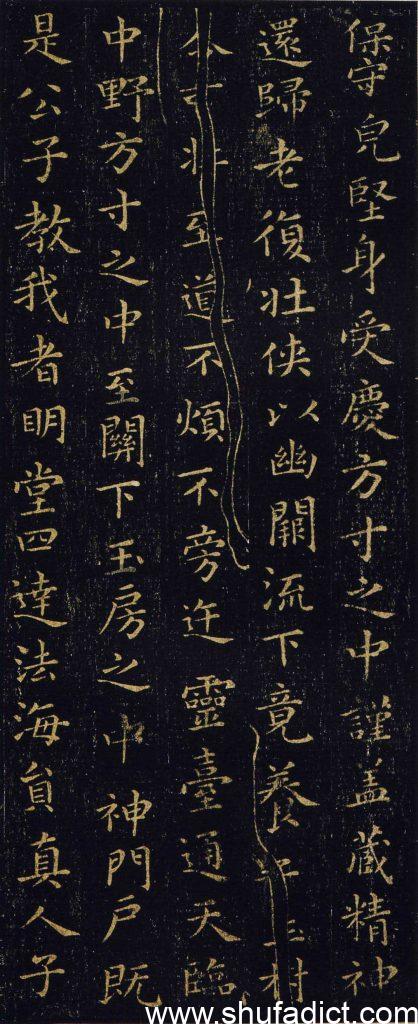 保守皃堅身受慶方寸之中謹盖藏精神
還歸老復壯侠以幽闕流下竟養子玉樹
不可壯至道不煩不旁迕靈臺通天臨
中野方寸之中至關下玉房之中神門戶既
是公子教我者明堂四達法海員真人子
www.shufadict.com